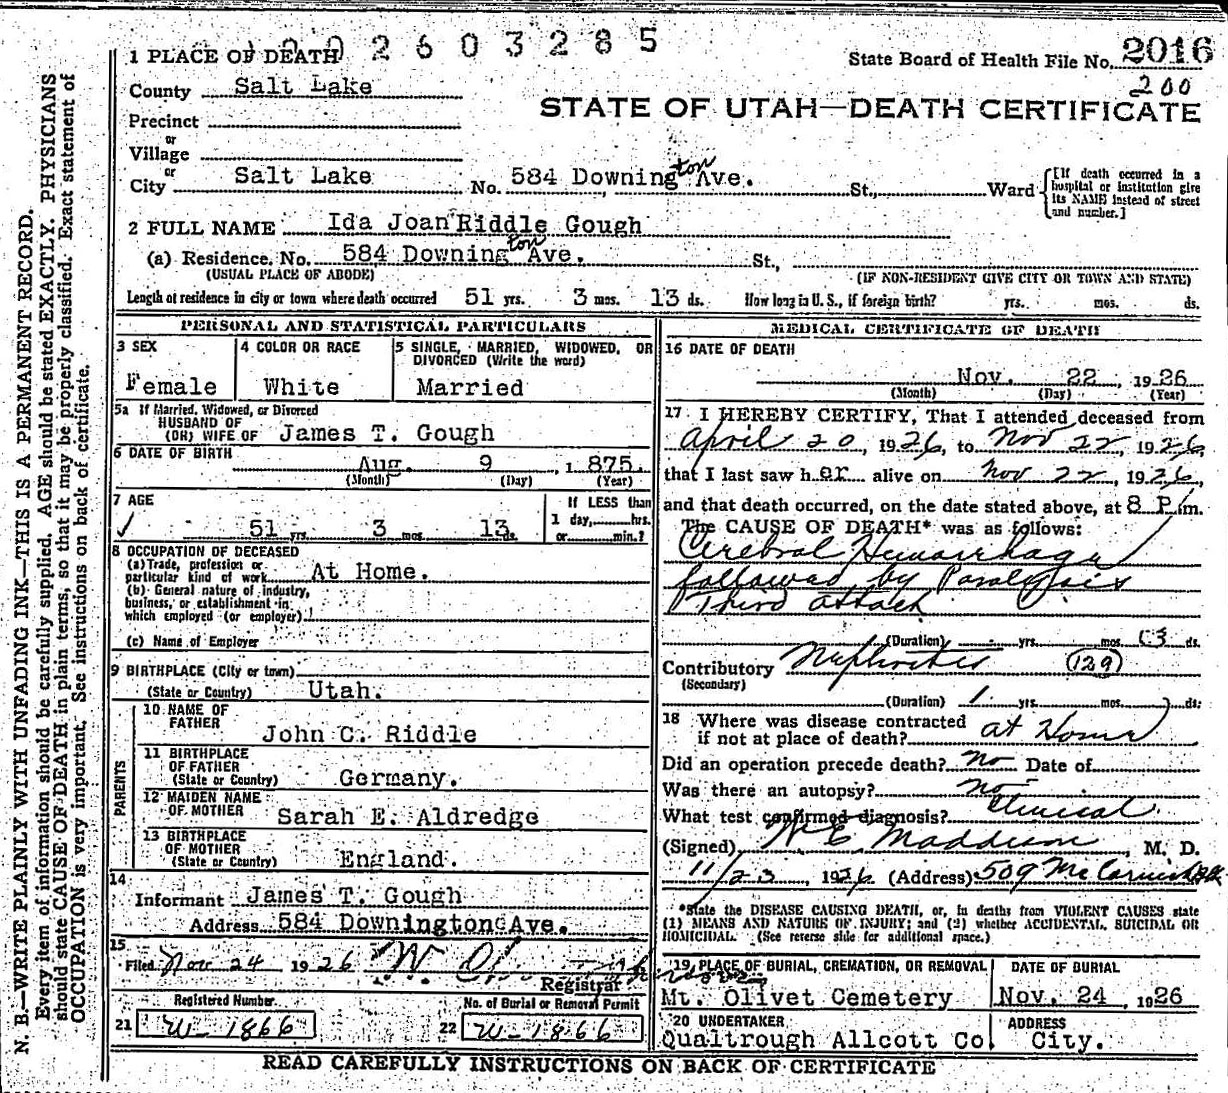 N. B.—WRITE PLAINLY WITH UNFADING INK—THIS IS A PERMANENT RECORD.
Every item of information should be carefully supplied. AGE should be stated EXACTLY. PHYSICIANS
should state CAUSE OF DEATH in plain terms, so that it may be properly classified. Exact statement of
OCCUPATION is very important. See instructions on back of certificate.
1002603285
1 PLACE OF DEATH
State Board of Health File No. 2016
200
County Salt Lake
STATE OF UTAH—DEATH CERTIFICATE
Precinct
or
Village
or
City Salt Lake No. 584 Downington Ave. St., Ward
[If death occurred in a
hospital or institution give
its NAME instead of street
and number.]
2 FULL NAME Ida Joan Riddle Gough
(a) Residence. No. 584 Downington Ave. St.,
(USUAL PLACE OF ABODE) (IF NON-RESIDENT GIVE CITY OR TOWN AND STATE)
Length of residence in city or town where death occurred 51 yrs. 3 mos. 13 ds. How long in U. S., if foreign birth? yrs. mos. ds.
PERSONAL AND STATISTICAL PARTICULARS
3 SEX
Female
4 COLOR OR RACE
White
5 SINGLE, MARRIED, WIDOWED, OR
DIVORCED (Write the word)
Married
5a If Married, Widowed, or Divorced
HUSBAND OF
(OR) WIFE OF James T. Gough
6 DATE OF BIRTH
Aug. 9, 1875.
(Month) (Day) (Year)
7 AGE
51 yrs. 3 mos. 13 ds.
If LESS than
1 day, hrs.
or min.?
8 OCCUPATION OF DECEASED
(a) Trade, profession or
particular kind of work At Home.
(b) General nature of industry,
business, or establishment in
which employed (or employer)
(c) Name of Employer
9 BIRTHPLACE (City or town)
(State or Country) Utah.
PARENTS
10 NAME OF
FATHER
John C. Riddle
11 BIRTHPLACE
OF FATHER
(State or Country) Germany.
12 MAIDEN NAME
OF MOTHER
Sarah E. Aldredge
13 BIRTHPLACE
OF MOTHER
(State or Country) England.
14
Informant James T. Gough
Address 584 Downington Ave.
15
Filed Nov 24 1926
Registrar
Registered Number
21 W-1866
No. of Burial or Removal Permit
22 W-1866
MEDICAL CERTIFICATE OF DEATH
16 DATE OF DEATH
Nov. 22, 1926
(Month) (Day) (Year)
17 I HEREBY CERTIFY, That I attended deceased from
April 20, 1926, to Nov 22, 1926,
that I last saw her alive on Nov 22, 1926,
and that death occurred, on the date stated above, at 8 P. m.
The CAUSE OF DEATH* was as follows:
Cerebral Hemorrhage
followed by Paralysis
Third attack
(Duration) yrs. mos. 13 ds.
Contributory Nephritis (129)
(Secondary)
(Duration) 1 yrs. mos. ds.
18 Where was disease contracted
if not at place of death? at Home
Did an operation precede death? no Date of
Was there an autopsy? no
What test confirmed diagnosis? Clinical
(Signed) Maddison, M. D.
11/23, 1926 (Address) 509 McCornick Blk
*State the DISEASE CAUSING DEATH, or, in deaths from VIOLENT CAUSES state
(1) MEANS AND NATURE OF INJURY; and (2) whether ACCIDENTAL, SUICIDAL OR
HOMICIDAL. (See reverse side for additional space.)
19 PLACE OF BURIAL, CREMATION, OR REMOVAL
Mt. Olivet Cemetery
DATE OF BURIAL
Nov. 24, 1926
20 UNDERTAKER
Qualtrough Allcott Co.
ADDRESS
City.
READ CAREFULLY INSTRUCTIONS ON BACK OF CERTIFICATE